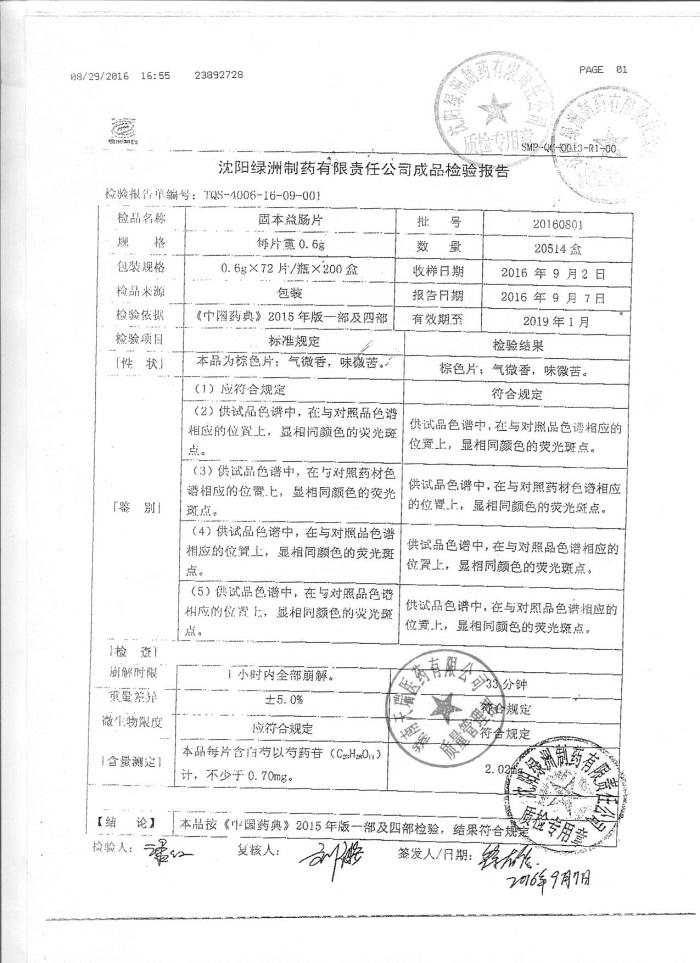 08/29/2016 16:55 23892728 PAGE 01
沈阳绿洲制药有限责任公司
质检专用章
SMP-QC-0013-R1-00
沈阳绿洲制药有限责任公司成品检验报告
检验报告单编号：TQS-4006-16-09-001
检品名称 固本益肠片 批 号 20160801
规 格 每片重0.6g 数 量 20514盒
包装规格 0.6g×72片/瓶×200盒 收样日期 2016 年 9 月 2 日
检品来源 包装 报告日期 2016 年 9 月 7 日
检验依据 《中国药典》2015年版一部及四部 有效期至 2019年1月
检验项目 标准规定 检验结果
[性 状] 本品为棕色片；气微香，味微苦。 棕色片；气微香，味微苦。
[鉴 别]
（1）应符合规定 符合规定
（2）供试品色谱中，在与对照品色谱
相应的位置上，显相同颜色的荧光斑
点。
供试品色谱中，在与对照品色谱相应的
位置上，显相同颜色的荧光斑点。
（3）供试品色谱中，在与对照药材色
谱相应的位置上，显相同颜色的荧光
斑点。
供试品色谱中，在与对照药材色谱相应
的位置上，显相同颜色的荧光斑点。
（4）供试品色谱中，在与对照品色谱
相应的位置上，显相同颜色的荧光斑
点。
供试品色谱中，在与对照品色谱相应的
位置上，显相同颜色的荧光斑点。
（5）供试品色谱中，在与对照品色谱
相应的位置上，显相同颜色的荧光斑
点。
供试品色谱中，在与对照品色谱相应的
位置上，显相同颜色的荧光斑点。
[检 查]
崩解时限 1小时内全部崩解。 33分钟
重量差异 ±5.0% 符合规定
微生物限度 应符合规定 符合规定
[含量测定] 本品每片含白芍以芍药苷（C₂₃H₂₈O₁₁）
计，不少于0.70mg。
2.02mg
医药有限公司
质量管理部
【结 论】 本品按《中国药典》2015年版一部及四部检验，结果符合规定
沈阳绿洲制药有限责任公司
质检专用章
检验人： 复核人： 签发人/日期：
2016年9月7日